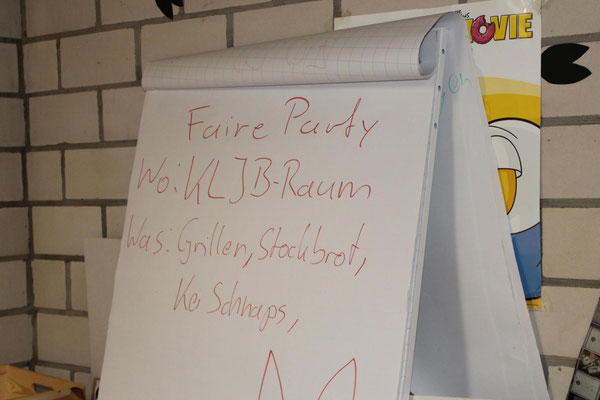 MOVIE
Faire Party
Wo: KLJB-Raum
Was: Grillen, Stockbrot,
Kei Schnaps,